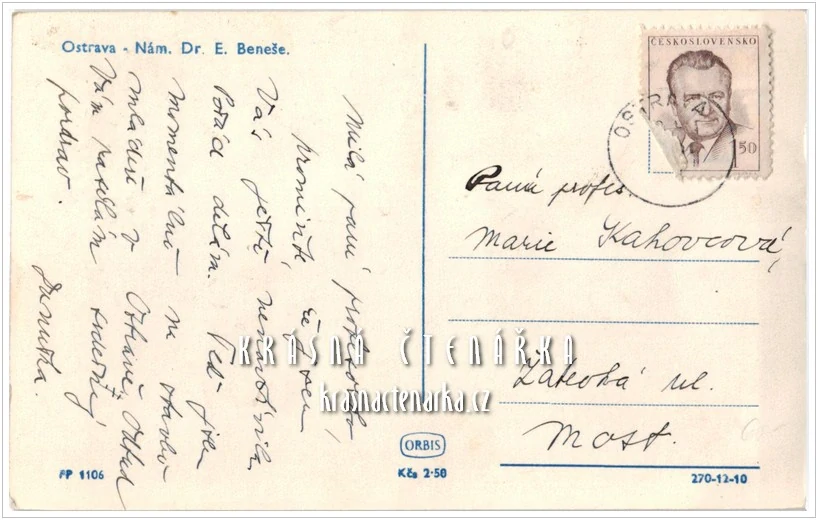 Ostrava - Nám. Dr. E. Beneše.
Milá paní profesorko,
prominte, že jsem
Vás ještě nenavštívila.
Pořád dělám. Teď jsem
momentálně na stavbě
mládeže v Ostravě, odtud
Vám posílám srdečný
pozdrav.
Danuška.
PP 1106
ORBIS
Kčs 2·50
ČESKOSLOVENSKO
150
OSTRAVA
Paní profes.
Marie Kahovcová,
Žatecká ul.
Most.
270-12-10
KRÁSNÁ ČTENÁŘKA
krasnactenarka.cz